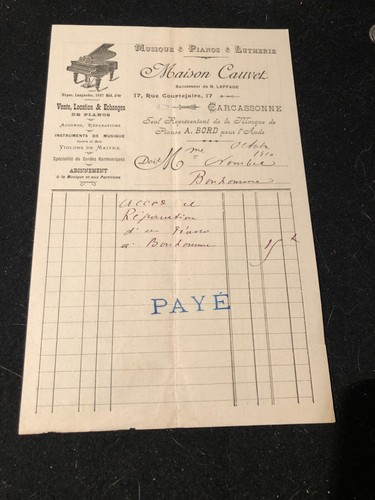 Musique & Pianos & Lutherie
Maison Cauvet
Successeur de B. LAFFAGE
17, Rue Courtejaire, 17
CARCASSONNE
Seul Représentant de la Marque de
Pianos A. BORD pour l'Aude
Vente, Location & Echanges
DE PIANOS
ACCORDS, RÉPARATIONS
INSTRUMENTS DE MUSIQUE
VIOLONS DE MAITRE
Spécialité de Cordes Harmoniques
ABONNEMENT
à la Musique et aux Partitions
Octobre 1910
Doit Mme
Bonhomme
accord et
Réparation
d'un Piano
a Bonhomme 15
PAYÉ